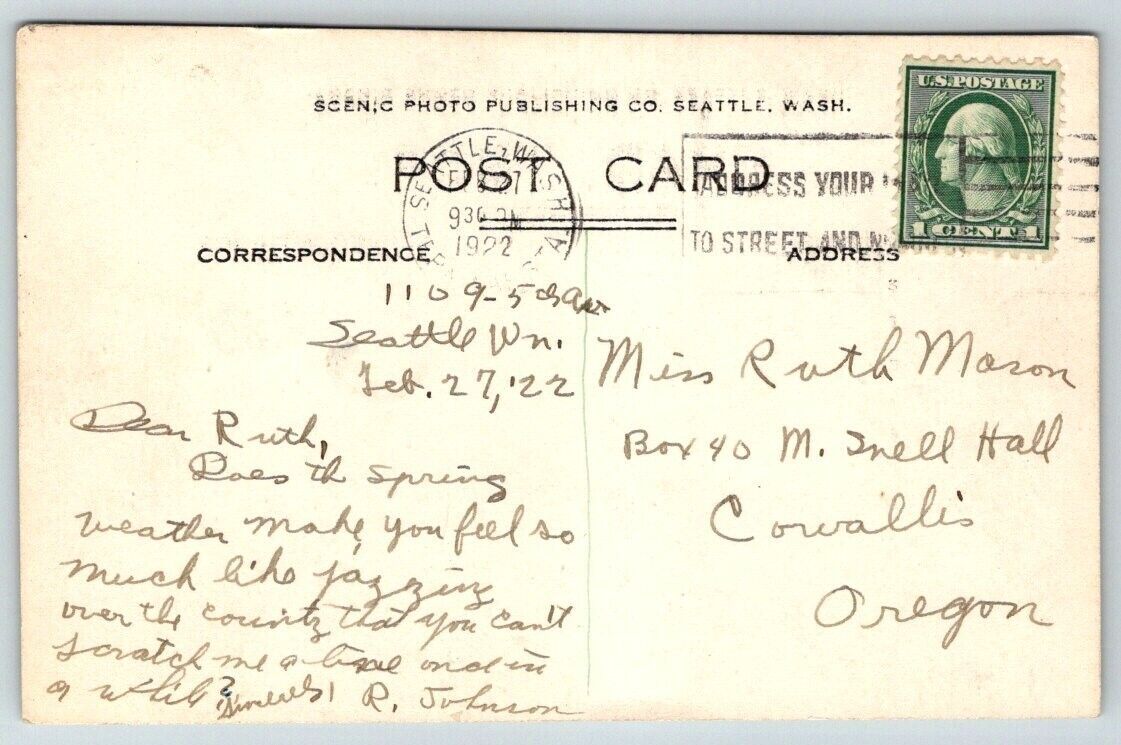 SCENIC PHOTO PUBLISHING CO. SEATTLE, WASH.
POST CARD
SEATTLE, WASH.
FEB 27
930 PM
1922
ADDRESS YOUR
TO STREET AND
U.S. POSTAGE
1 CENT 1
CORRESPONDENCE
ADDRESS
1109-5th Ave
Seattle Wn.
Feb. 27, '22
Dear Ruth,
Does th spring
weather make you feel so
much like jazzing
over the country that you can't
scratch me a line once in
a while?
Sincerely, R. Johnson
Miss Ruth Mason
Box 40 M. Snell Hall
Corvallis
Oregon